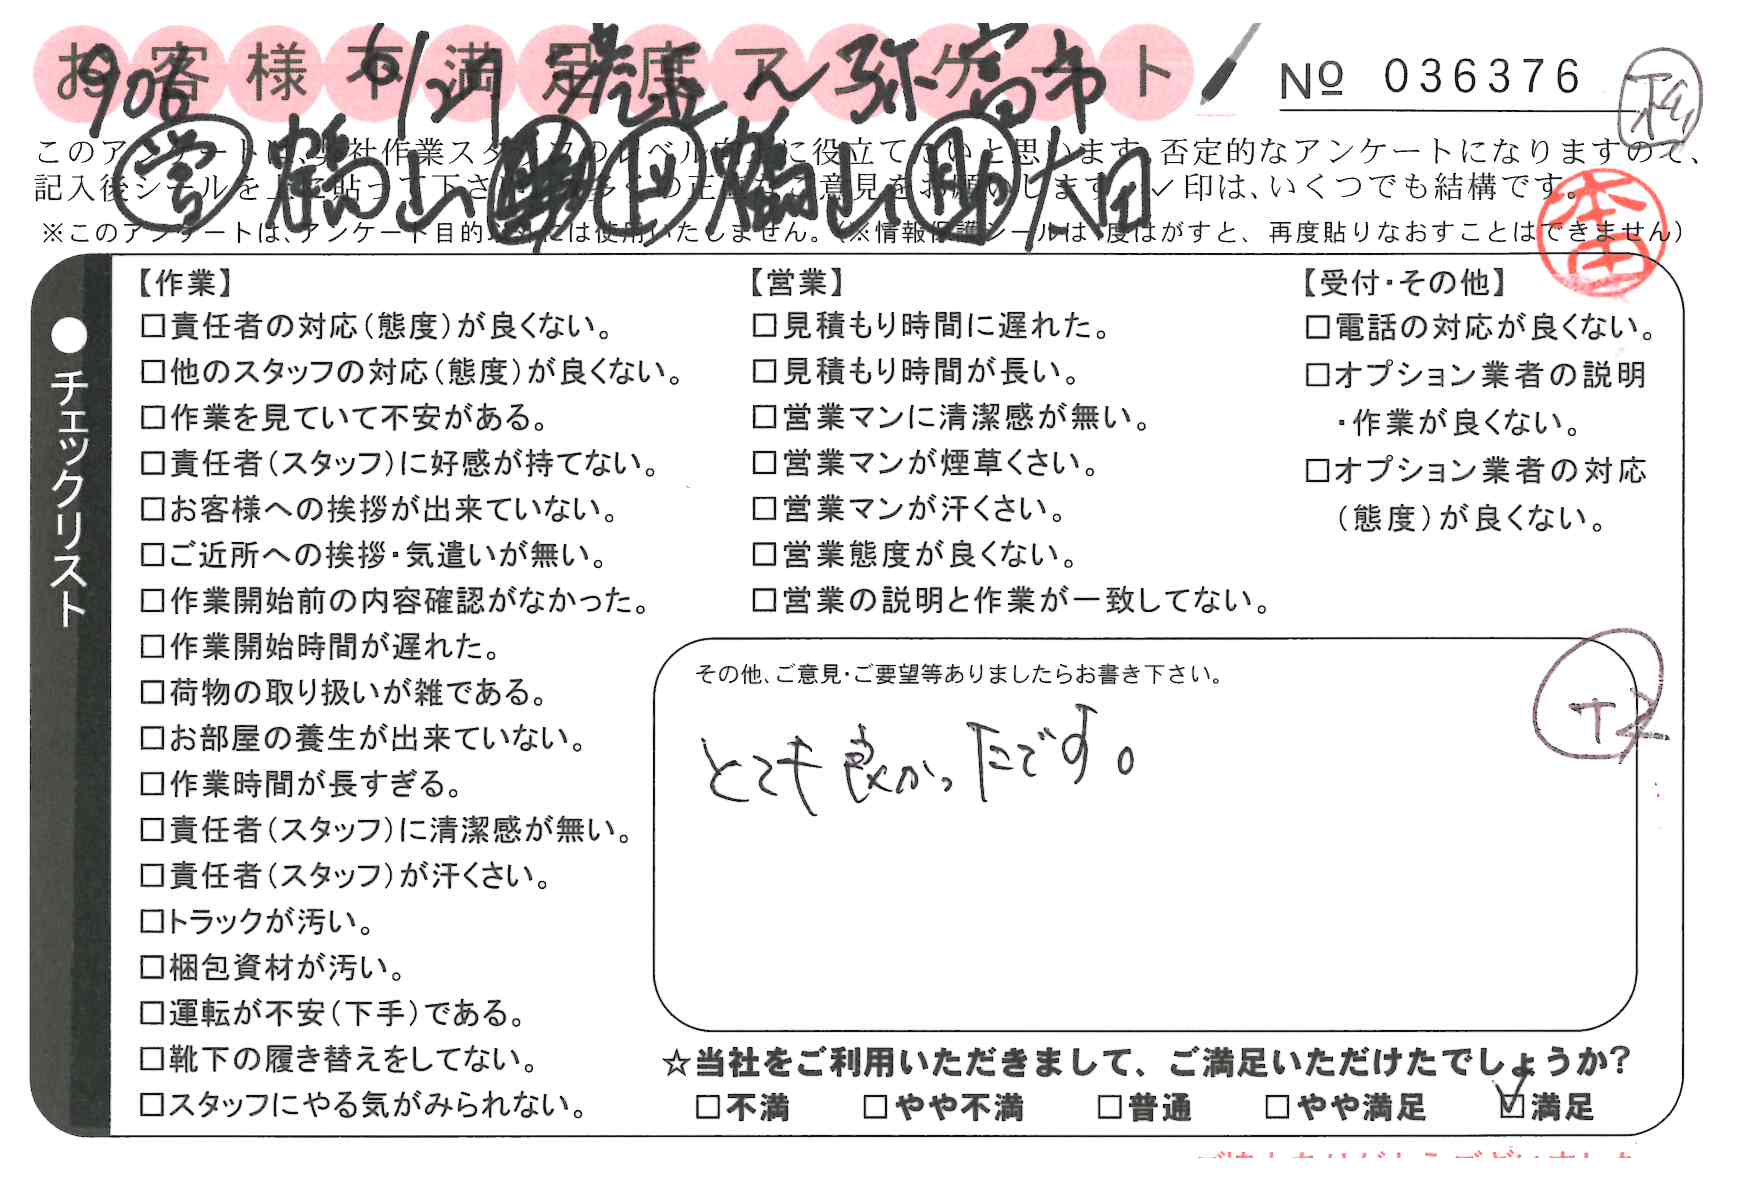 お客様不満足度アンケート
906 6/27 〜弥富市
No 036376
このアンケートは、弊社作業スタッフのレベル向上に役立てたいと思います。否定的なアンケートになりますので、
記入後シールを上に貼って下さい。多くの正直なご意見をお願いします。✓印は、いくつでも結構です。
営 横山 日 横山 助 太田
※このアンケートは、アンケート目的以外には使用いたしません。(※情報保護シールは1度はがすと、再度貼りなおすことはできません)
本田
●チェックリスト
【作業】
□責任者の対応(態度)が良くない。
□他のスタッフの対応(態度)が良くない。
□作業を見ていて不安がある。
□責任者(スタッフ)に好感が持てない。
□お客様への挨拶が出来ていない。
□ご近所への挨拶・気遣いが無い。
□作業開始前の内容確認がなかった。
□作業開始時間が遅れた。
□荷物の取り扱いが雑である。
□お部屋の養生が出来ていない。
□作業時間が長すぎる。
□責任者(スタッフ)に清潔感が無い。
□責任者(スタッフ)が汗くさい。
□トラックが汚い。
□梱包資材が汚い。
□運転が不安(下手)である。
□靴下の履き替えをしてない。
□スタッフにやる気がみられない。
【営業】
□見積もり時間に遅れた。
□見積もり時間が長い。
□営業マンに清潔感が無い。
□営業マンが煙草くさい。
□営業マンが汗くさい。
□営業態度が良くない。
□営業の説明と作業が一致してない。
【受付・その他】
□電話の対応が良くない。
□オプション業者の説明
・作業が良くない。
□オプション業者の対応
(態度)が良くない。
その他、ご意見・ご要望等ありましたらお書き下さい。
とても良かったです。
☆当社をご利用いただきまして、ご満足いただけたでしょうか?
□不満 □やや不満 □普通 □やや満足 ☑満足